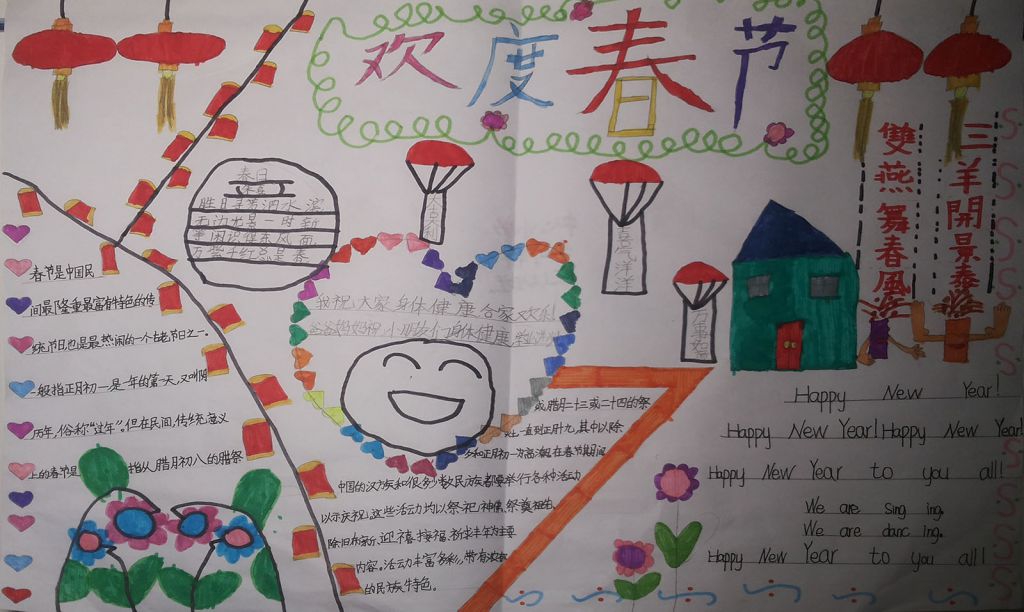 欢度春节
雙燕舞春風
三羊開景泰
春日
朱熹
胜日寻芳泗水滨
无边光景一时新
等闲识得东风面
万紫千红总是春
大吉利
喜气洋洋
万事如
我祝大家身体健康合家欢乐
爸爸妈妈祝小朋友们身体健康
春节是中国民
间最隆重最富有特色的传
统节日也是最热闹的一个古老节日之一。
一般指正月初一是一年的第一天,又叫阴
历年,俗称“过年”。但在民间,传统意义
上的春节是指从腊月初八的腊祭
或腊月二十三或二十四的祭
一直到正月十九,其中以除
夕和正月初一为高潮在春节期间
中国的汉族和很多少数民族都要举行各种活动
以示庆祝,这些活动均以祭祀神佛、祭奠祖先、
除旧布新、迎禧接福、祈求丰年为主要
内容。活动丰富多彩,带有浓郁
的民族特色。
Happy New Year!
Happy New Year! Happy New Year!
Happy New Year to you all!
We are sing ing.
We are danc ing.
Happy New Year to you all!